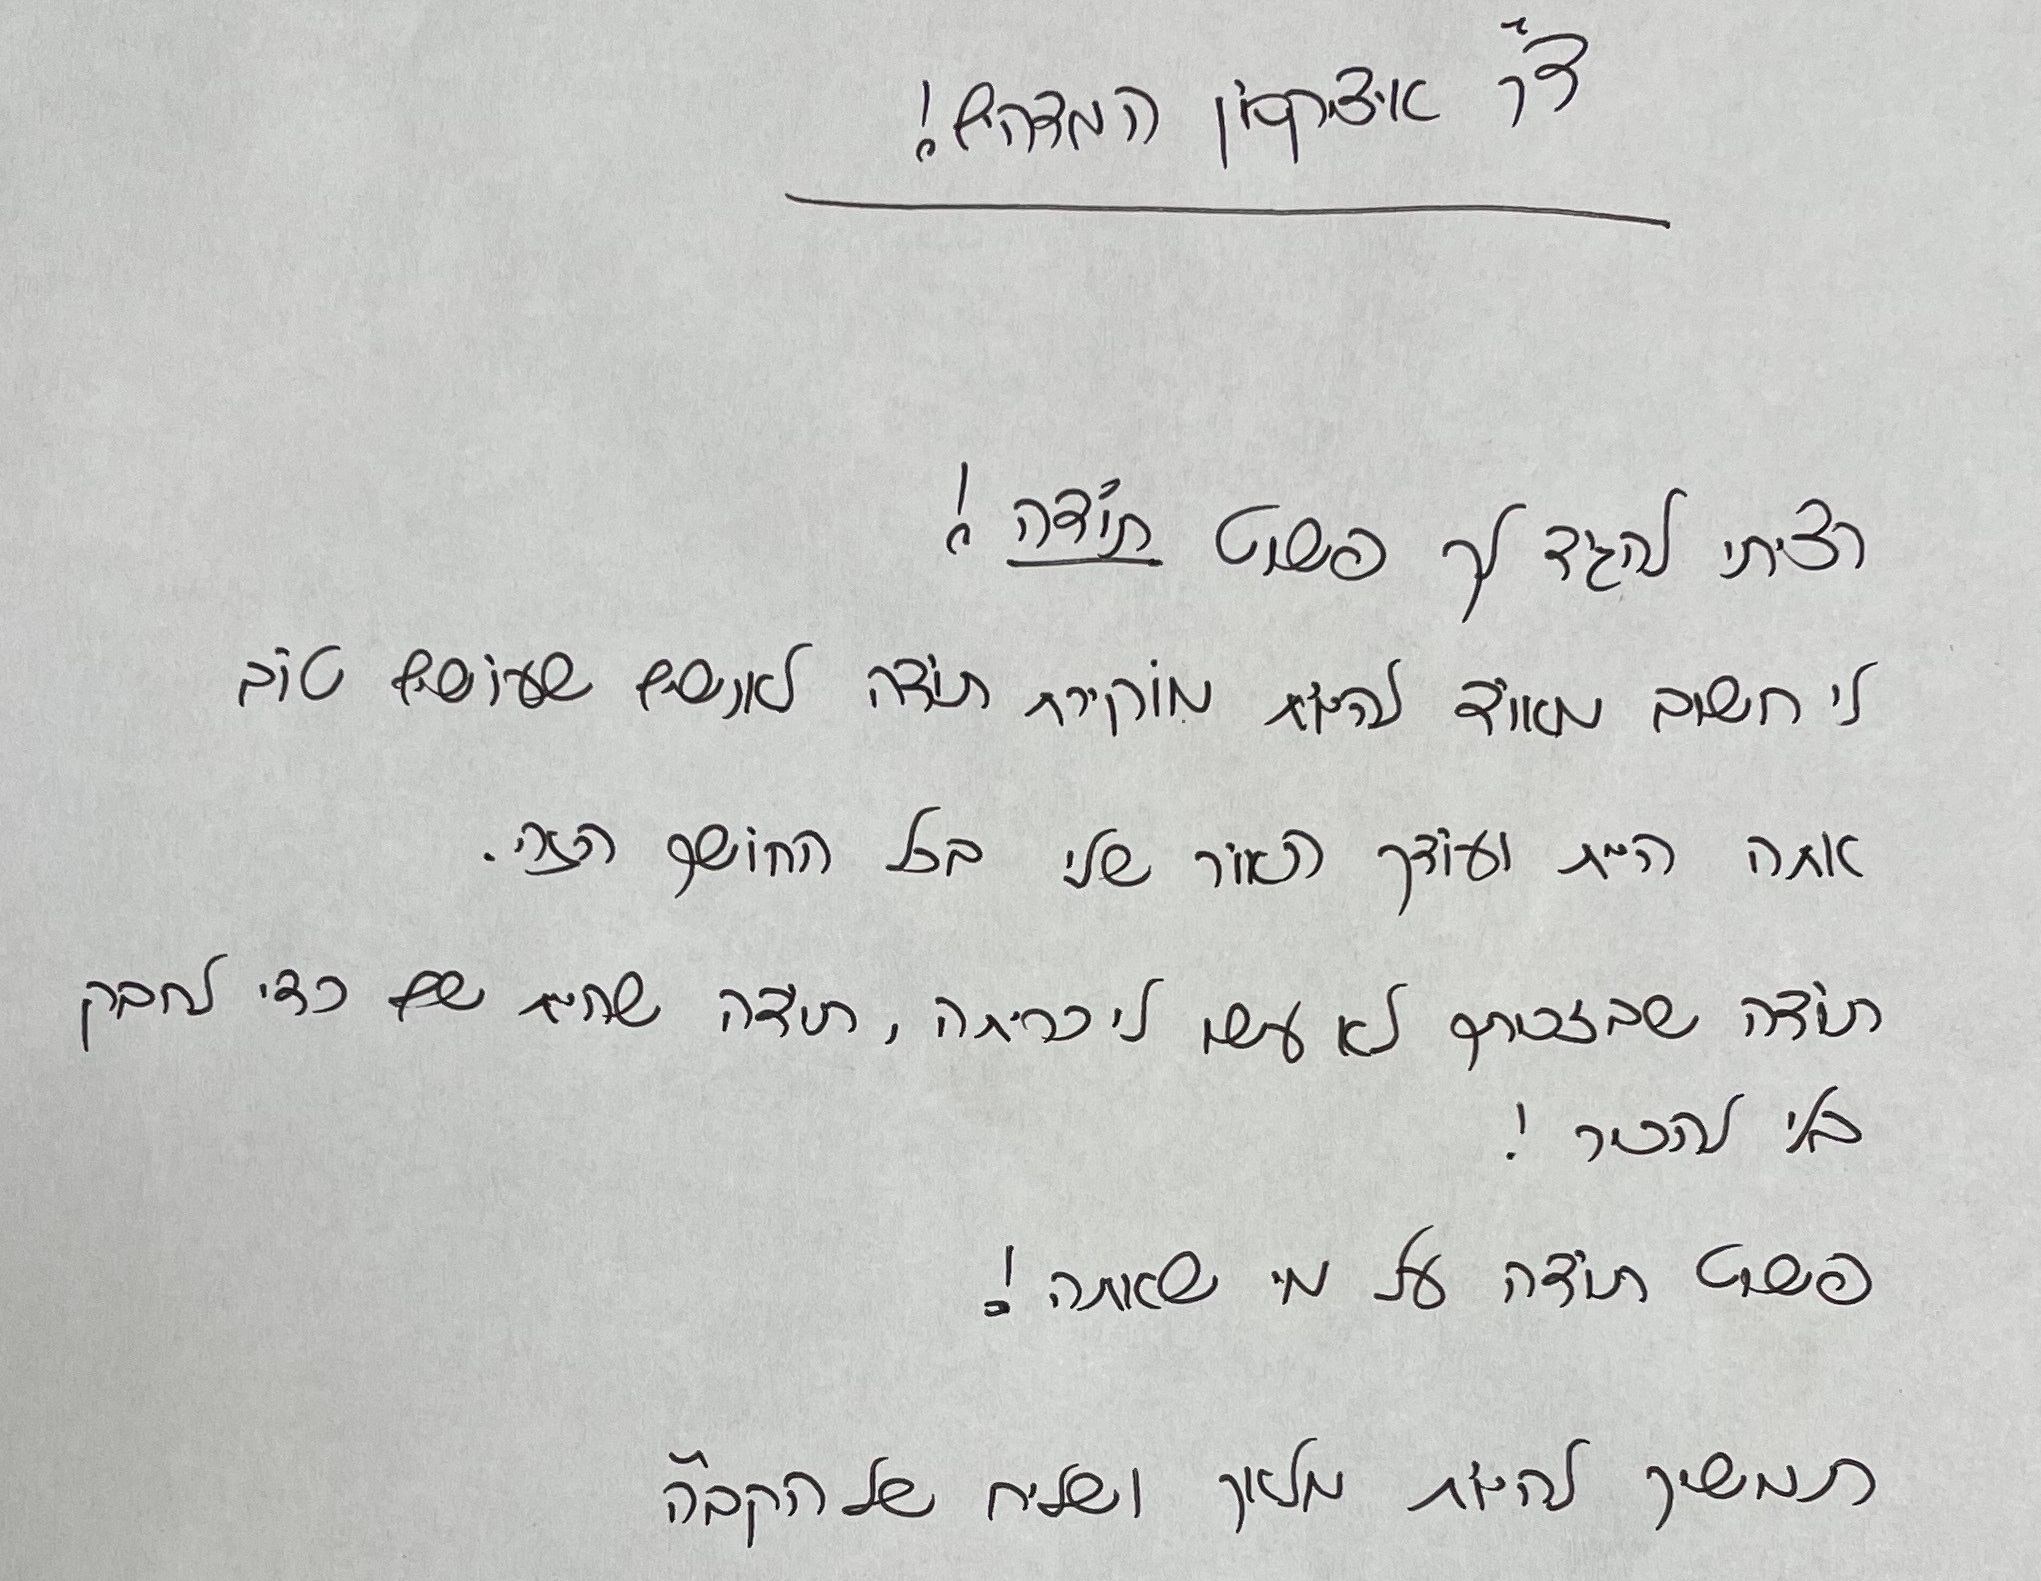 ד"ר איציקסון המדהים!
רציתי להגיד לך פשוט תודה!
לי חשוב מאוד להיות מוקירת תודה לאנשים שעושים טוב
אתה היית ועודך האור שלי בכל החושך הזה.
תודה שבזכותך לא עשו לי כריתה, תודה שהיית שם כדי לחבק
בלי להכיר!
פשוט תודה על מי שאתה!
תמשיך להיות מלאך ושליח של הקב"ה